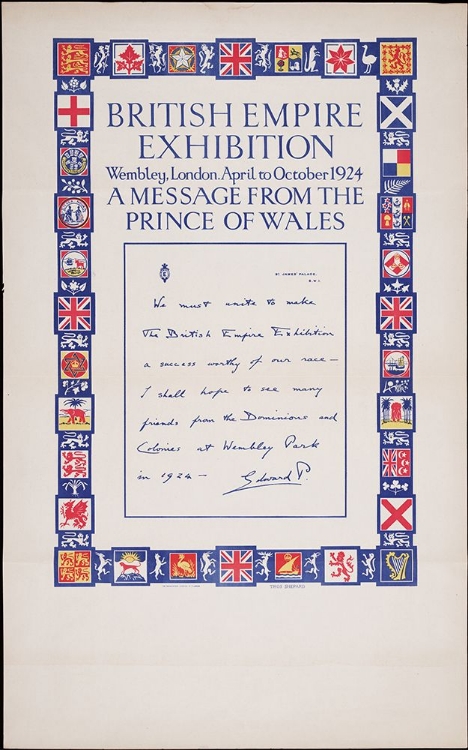 BRITISH EMPIRE
EXHIBITION
Wembley, London. April to October 1924
A MESSAGE FROM THE
PRINCE OF WALES
ST JAMES' PALACE,
S.W.1
We must unite to make
The British Empire Exhibition
a success worthy of our race —
I shall hope to see many
friends from the Dominions and
Colonies at Wembley Park
in 1924 —
Edward P.
THOS SHEPARD